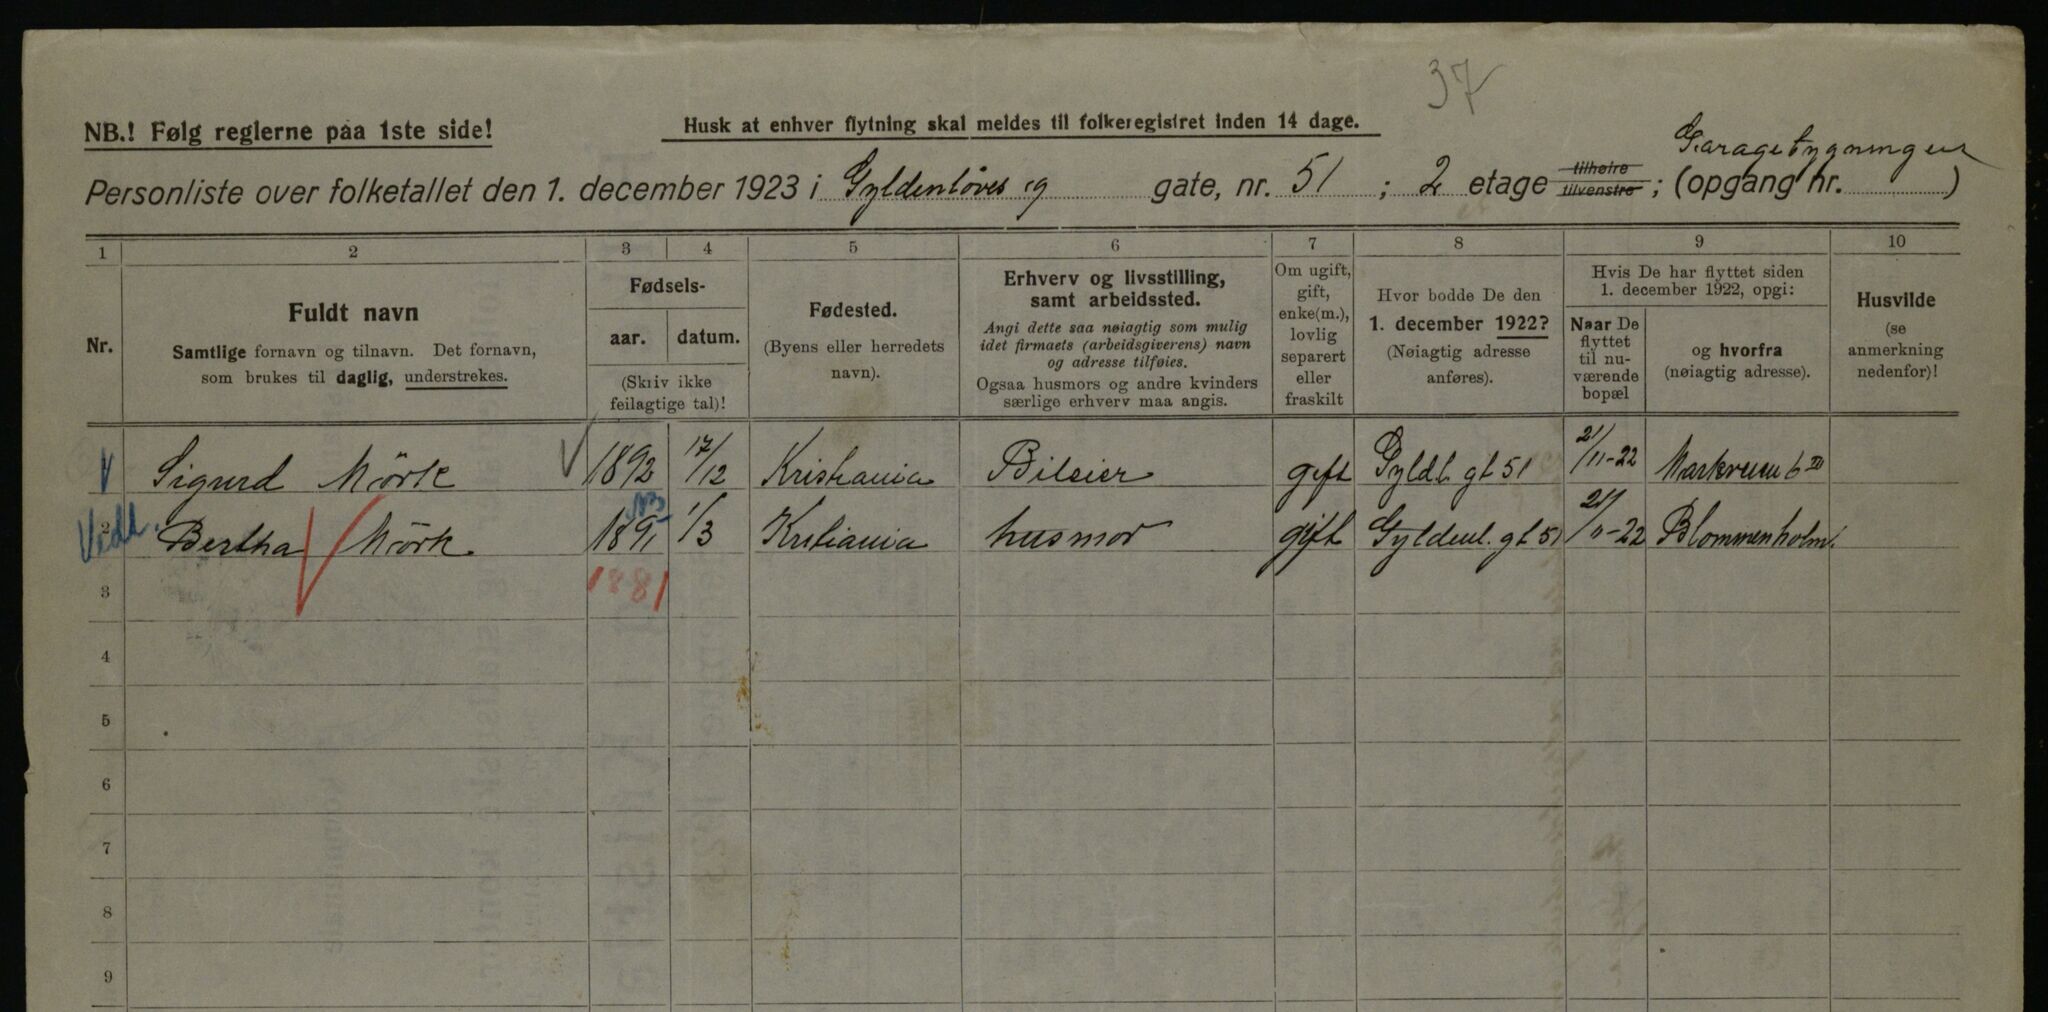 37
NB.! Følg reglerne paa 1ste side!
Husk at enhver flytning skal meldes til folkeregistret inden 14 dage.
Garagebygningen
Personliste over folketallet den 1. december 1923 i Gyldenløves g gate, nr. 51 ; 2 etage tilhøire tilvenstre ; (opgang nr. )
1 2 3 4 5 6 7 8 9 10
Nr.
Fuldt navn
Samtlige fornavn og tilnavn. Det fornavn,
som brukes til daglig, understrekes.
Fødsels-
aar. datum.
(Skriv ikke
feilagtige tal)!
Fødested.
(Byens eller herredets
navn).
Erhverv og livsstilling,
samt arbeidssted.
Angi dette saa nøiagtig som mulig
idet firmaets (arbeidsgiverens) navn
og adresse tilføies.
Ogsaa husmors og andre kvinders
særlige erhverv maa angis.
Om ugift,
gift,
enke(m.),
lovlig
separert
eller
fraskilt
Hvor bodde De den
1. december 1922?
(Nøiagtig adresse
anføres).
Hvis De har flyttet siden
1. december 1922, opgi:
Naar De
flyttet
til nu-
værende
bopæl
og hvorfra
(nøiagtig adresse).
Husvilde
(se
anmerkning
nedenfor)!
Sigurd Mörk 1892 17/12 Kristiania Bileier gift Gyldl. gt 51 21/11-22 6 III
2 Bertha Mörk 1891 1/3 Kristiania husmor gift Gyldenl. gt 51 21/11-22 Blommenholm.
1881
3
4
5
6
7
8
9